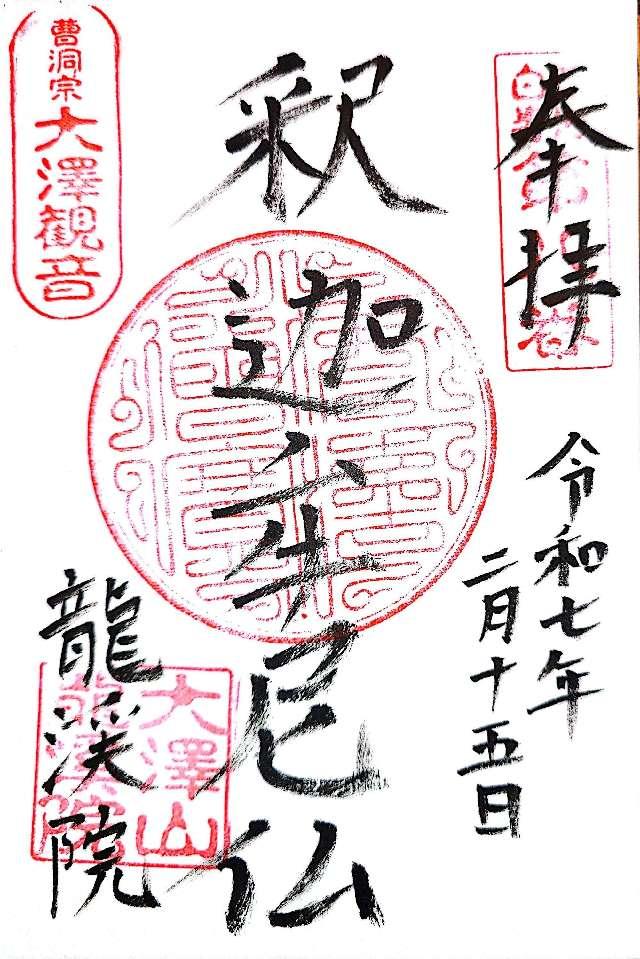 奉拝
令和七年
二月十五日
釈迦牟尼仏
龍渓院
曹洞宗
大澤観音
大澤山
龍溪院